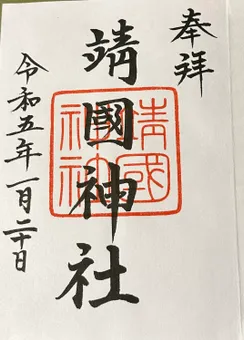 奉拝
靖國神社
靖國
神社
令和五年一月二十日